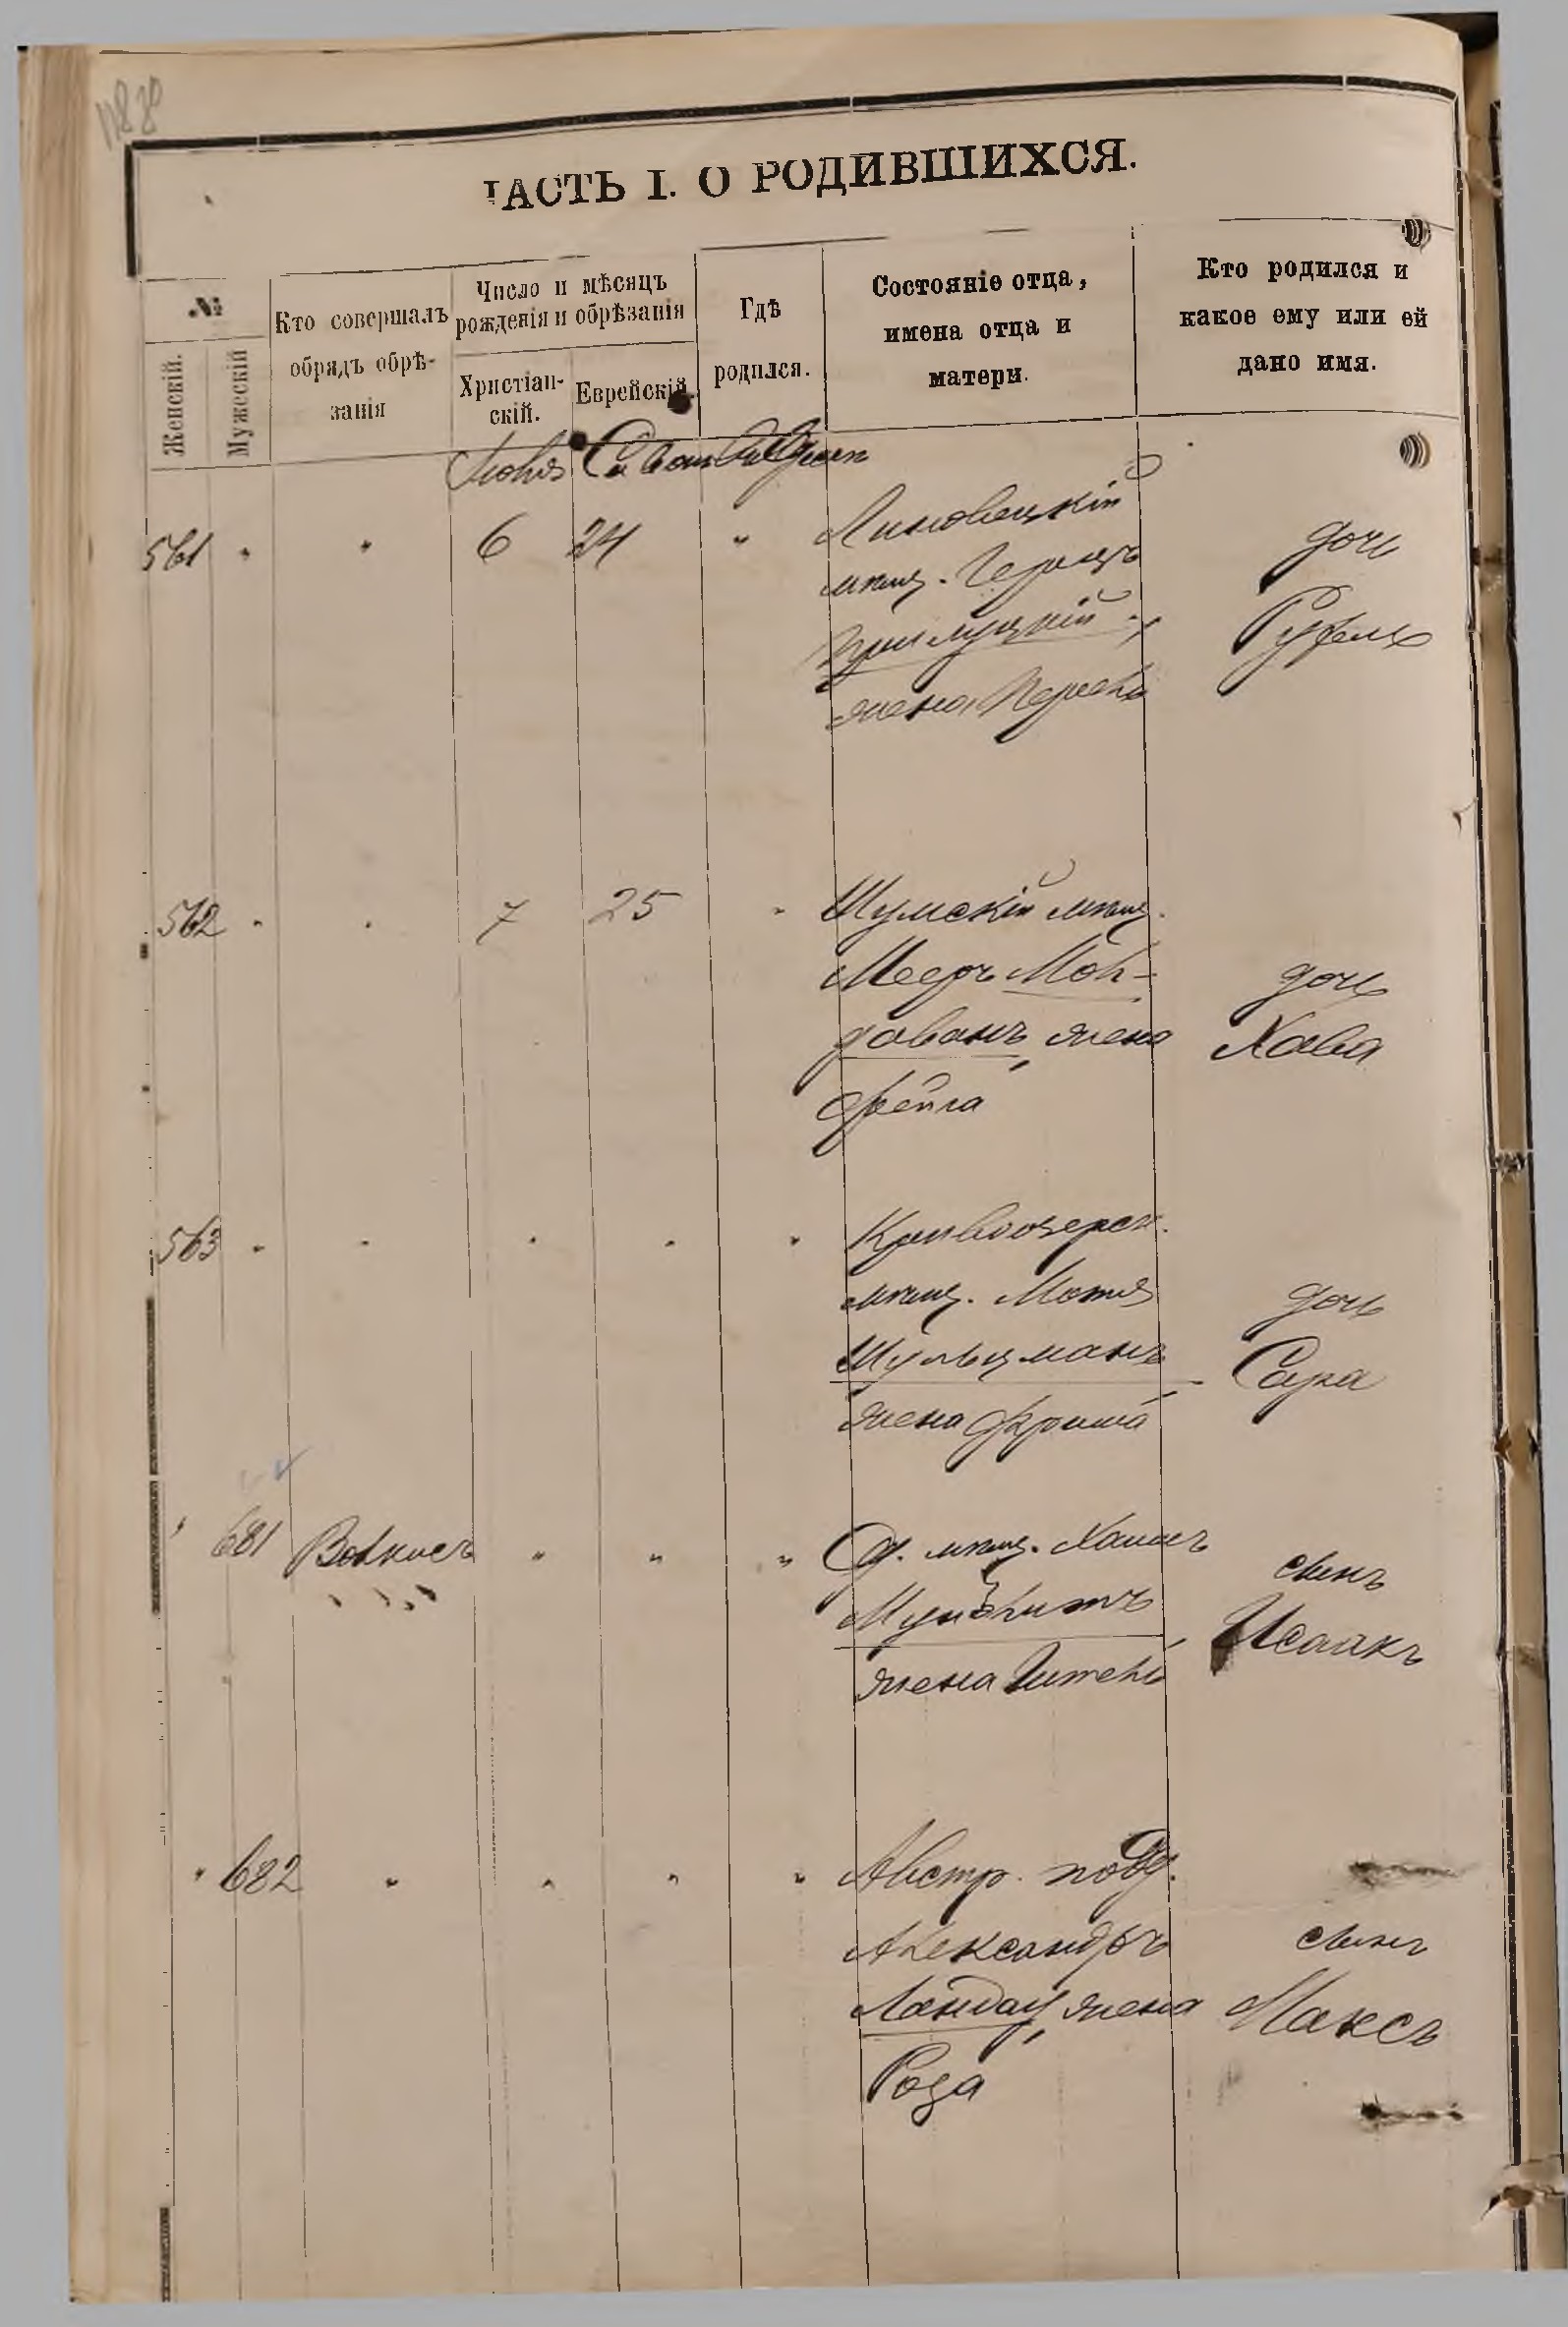 ЧАСТЬ I. О РОДИВШИХСЯ.
№
Женскій.
Мужескій
Кто совершалъ
обрядъ обрѣ-
занія
Число и мѣсяцъ
рожденія и обрѣзанія
Христіан-
скій.
Еврейскій.
Гдѣ
родился.
Состояніе отца,
имена отца и
матери.
Кто родился и
какое ему или ей
дано имя.
561 " " 6 24 "
Липовецкій
мѣщ. Гершъ
Прилуцкій
жена Перель
дочь
Рухель
562 " " 7 25 "
Шумскій мѣщ.
Мееръ Мол-
дованъ, жена
Фейга
дочь
Хава
563 " " " " "
Кривоозерск.
мѣщ. Мотя
Шульцманъ,
жена Фрима
дочь
Сура
" 681 " " "
Од. мѣщ. Хаимъ
жена Гитель
сынъ
Исаакъ
" 682 " " " "
Австр. подд.
Александръ
Ландау, жена
Роза
сынъ
Максъ